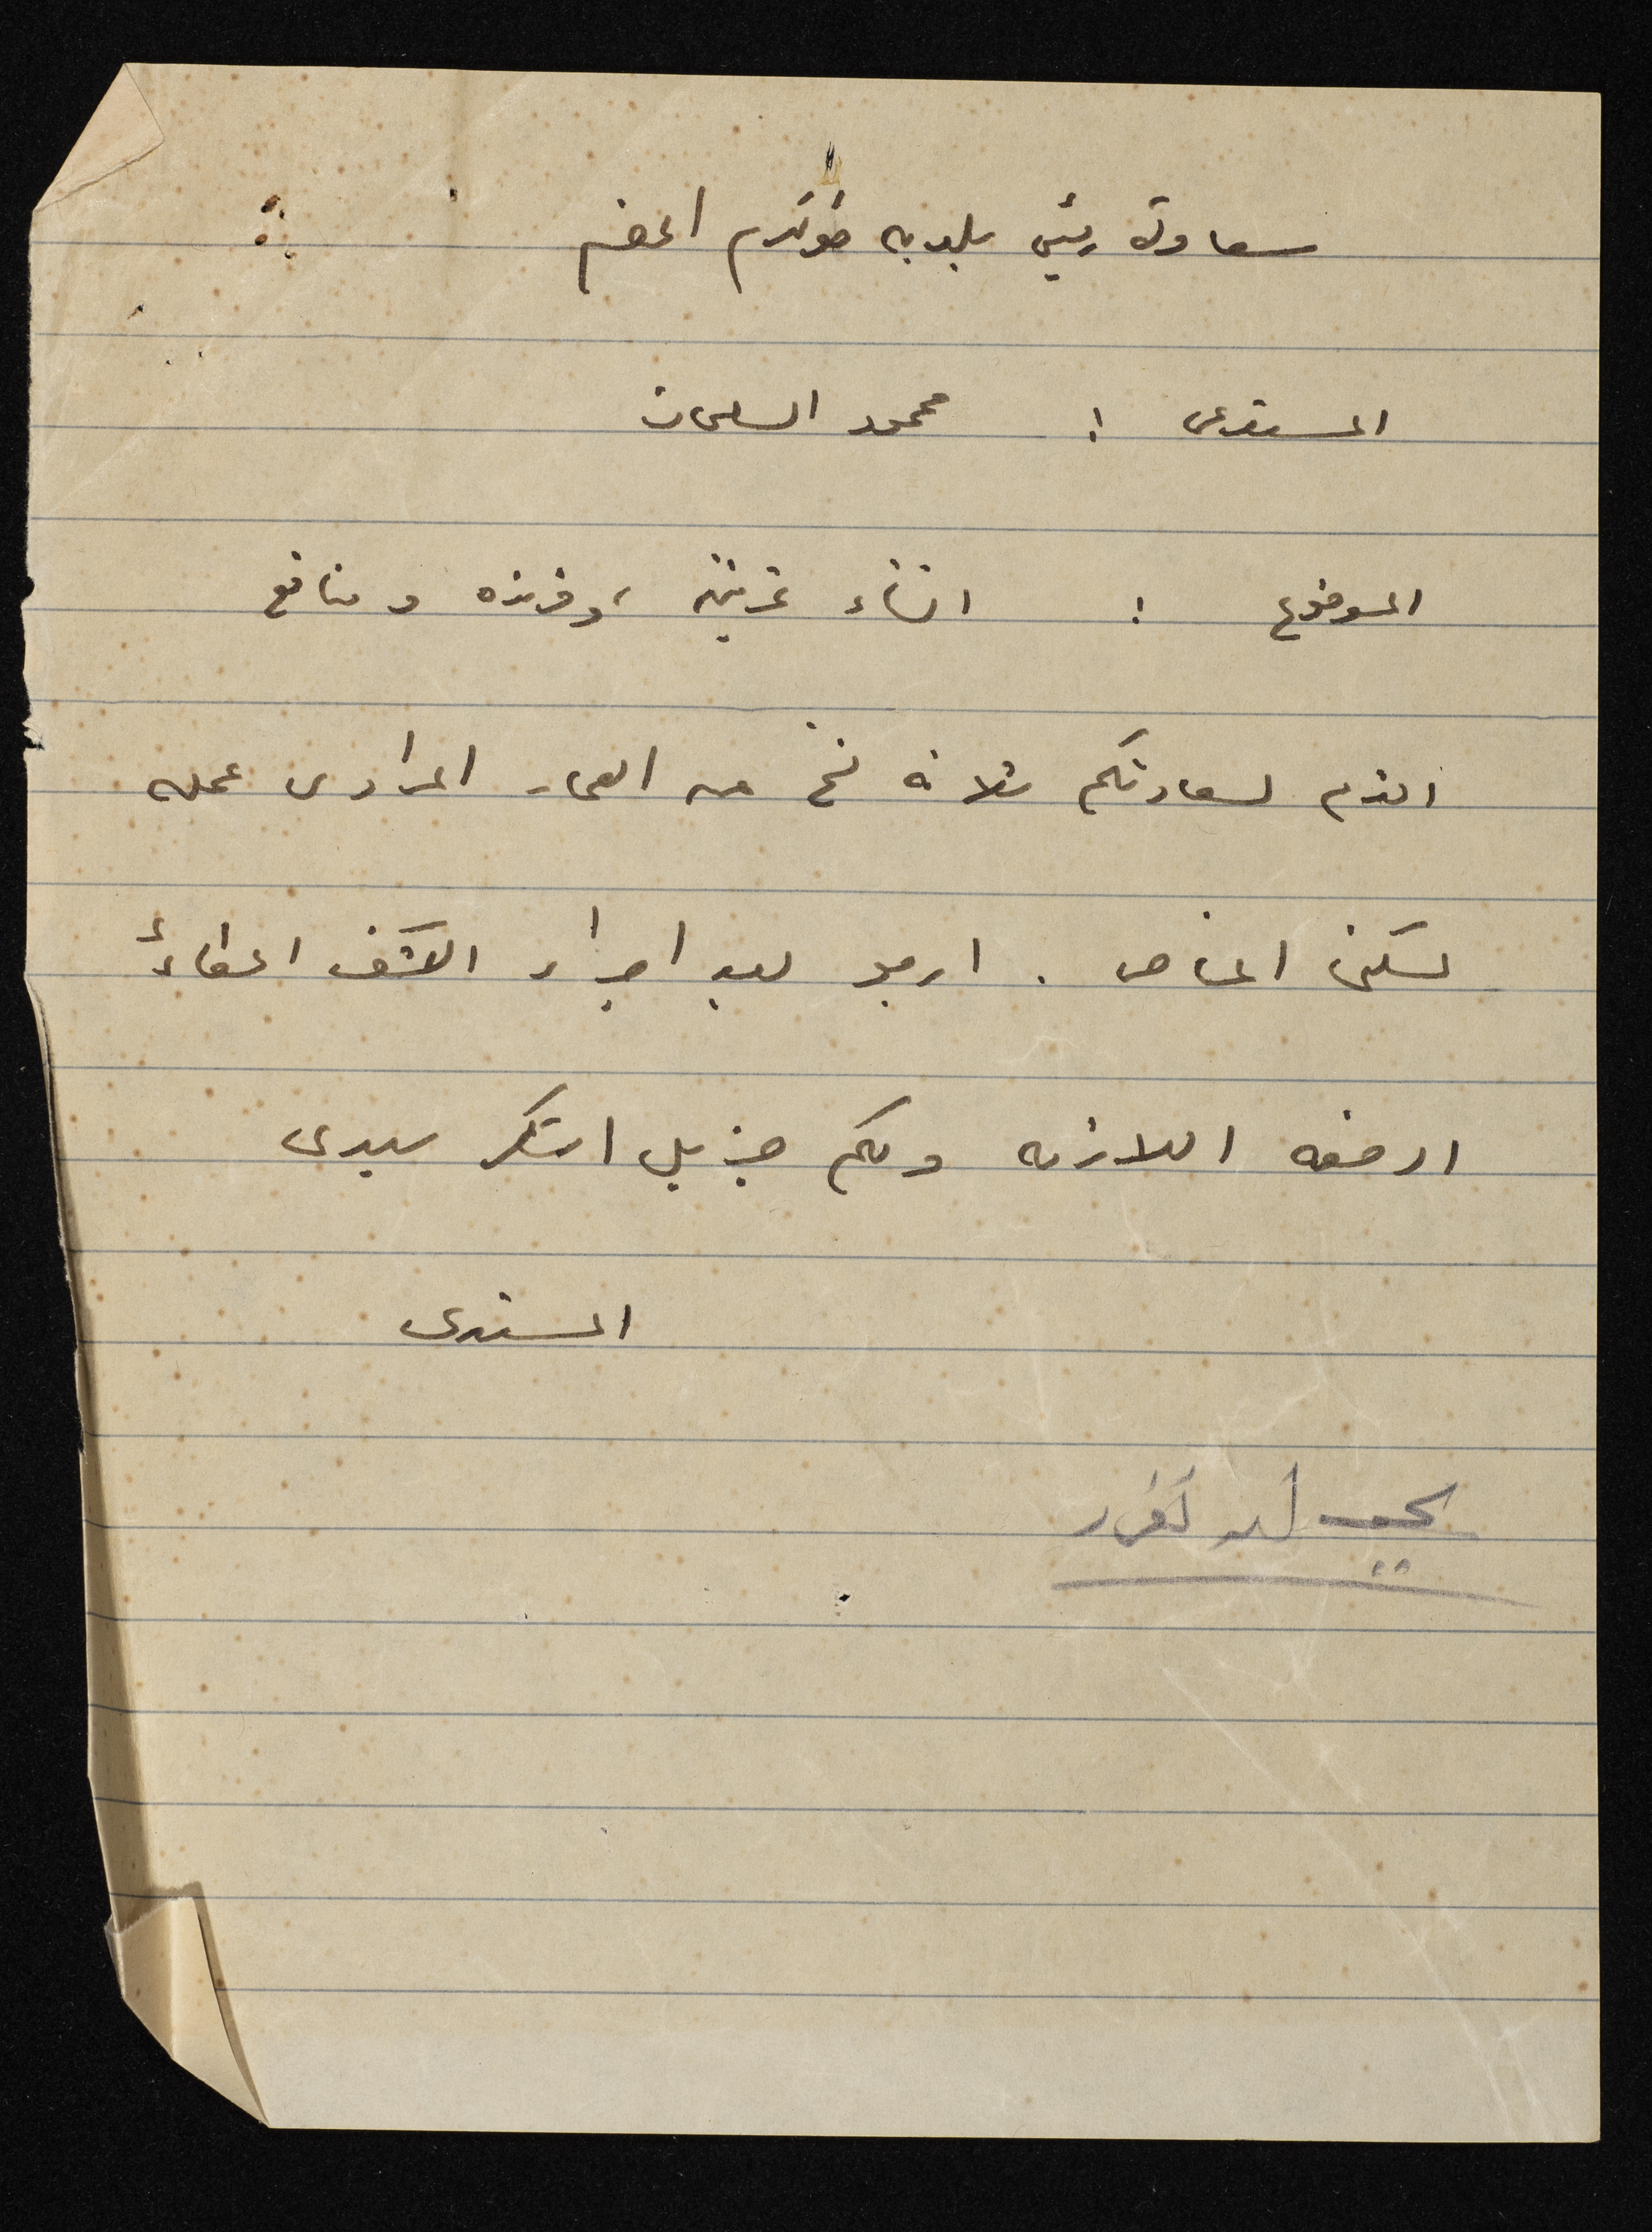 سعادة رئيس بلدية طولكرم المعظم
المستدعى : محمود السلمان
الموضوع : انشاء غرفتين وفرنده و منافع
اقدم لسعادتكم ثلاثة نسخ من العمار المراد عمله
لسكنى الخاص . ارجو بعد اجراء الكشف اعطائى
الرخصه اللازمه ولكم جزيل الشكر سيدى
المستدعى